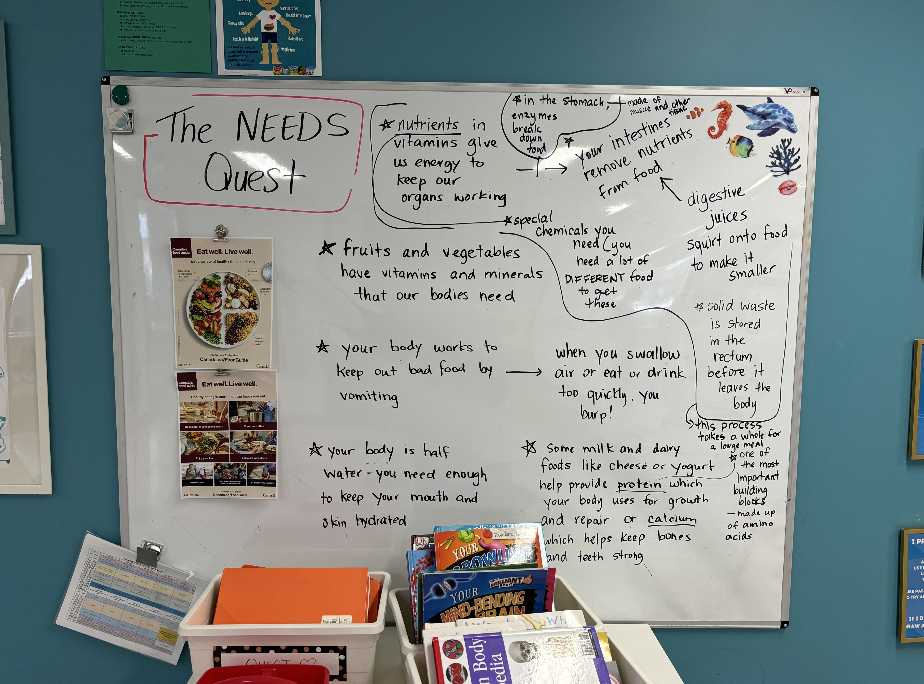 The NEEDS
Quest
★ nutrients in
vitamins give
us energy to
keep our
organs working
★ in the stomach
enzymes
break
down
food
made of
muscle and other
★
your intestines
remove nutrients
from food
digestive
juices
squirt onto food
to make it
smaller
★ special
chemicals you
need (you
need a lot of
DIFFERENT food
to get
these
★ fruits and vegetables
have vitamins and minerals
that our bodies need
★ solid waste
is stored
in the
rectum
before it
leaves the
body
★ your body works to
keep out bad food by
vomiting
when you swallow
air or eat or drink
too quickly, you
burp!
this process
takes a whole for
a large meal
★ your body is half
water - you need enough
to keep your mouth and
skin hydrated
★ Some milk and dairy
foods like cheese or yogurt
help provide protein which
your body uses for growth
and repair or calcium
which helps keep bones
and teeth strong
★ one of
the most
important
building
blocks
— made up
of amino
acids
Eat well. Live well.
Eat well. Live well.
YOUR
YOUR
MIND-BENDING
BRAIN
n Body
pedia
QUEST